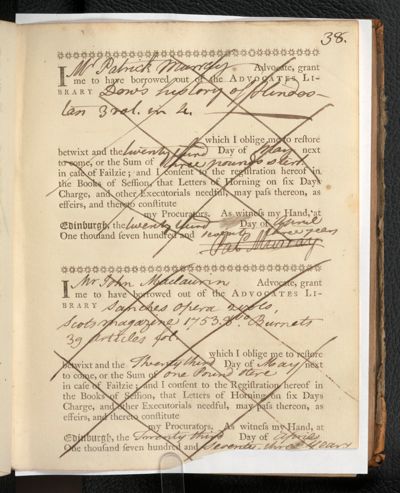 38.
I Mr Patrick Murray Advocate, grant
me to have borrowed out of the ADVOCATES LI-
BRARY Dow's history of Hindos-
tan 3 vol. in 4.
which I oblige me to reſtore
betwixt and the twenty third Day of May next
to come, or the Sum of three pounds sterl.
in caſe of Failzie; and I conſent to the regiſtration hereof in
the Books of Seſſion, that Letters of Horning on ſix Days
Charge, and other Executorials needful, may paſs thereon, as
effeirs, and thereto conſtitute
my Procurators. As witneſs my Hand, at
Edinburgh, the twenty third Day of April
One thousand ſeven hundred and seventy three years
Pat. Murray
I Mr John Mclaurin Advocate, grant
me to have borrowed out of the ADVOCATES LI-
BRARY Sanches opera 2 vols,
Scots magazine 1753. 8vo. Burnets
39 articles fol.
which I oblige me to reſtore
betwixt and the Twenty third Day of May next
to come, or the Sum of one Pound ster.
in caſe of Failzie; and I conſent to the Regiſtration hereof in
the Books of Seſſion, that Letters of Horning on ſix Days
Charge, and other Executorials needful, may paſs thereon, as
effeirs, and thereto conſtitute
my Procurators. As witneſs my Hand, at
Edinburgh, the Twenty third Day of April
One thouſand ſeven hundred and Seventy three Years